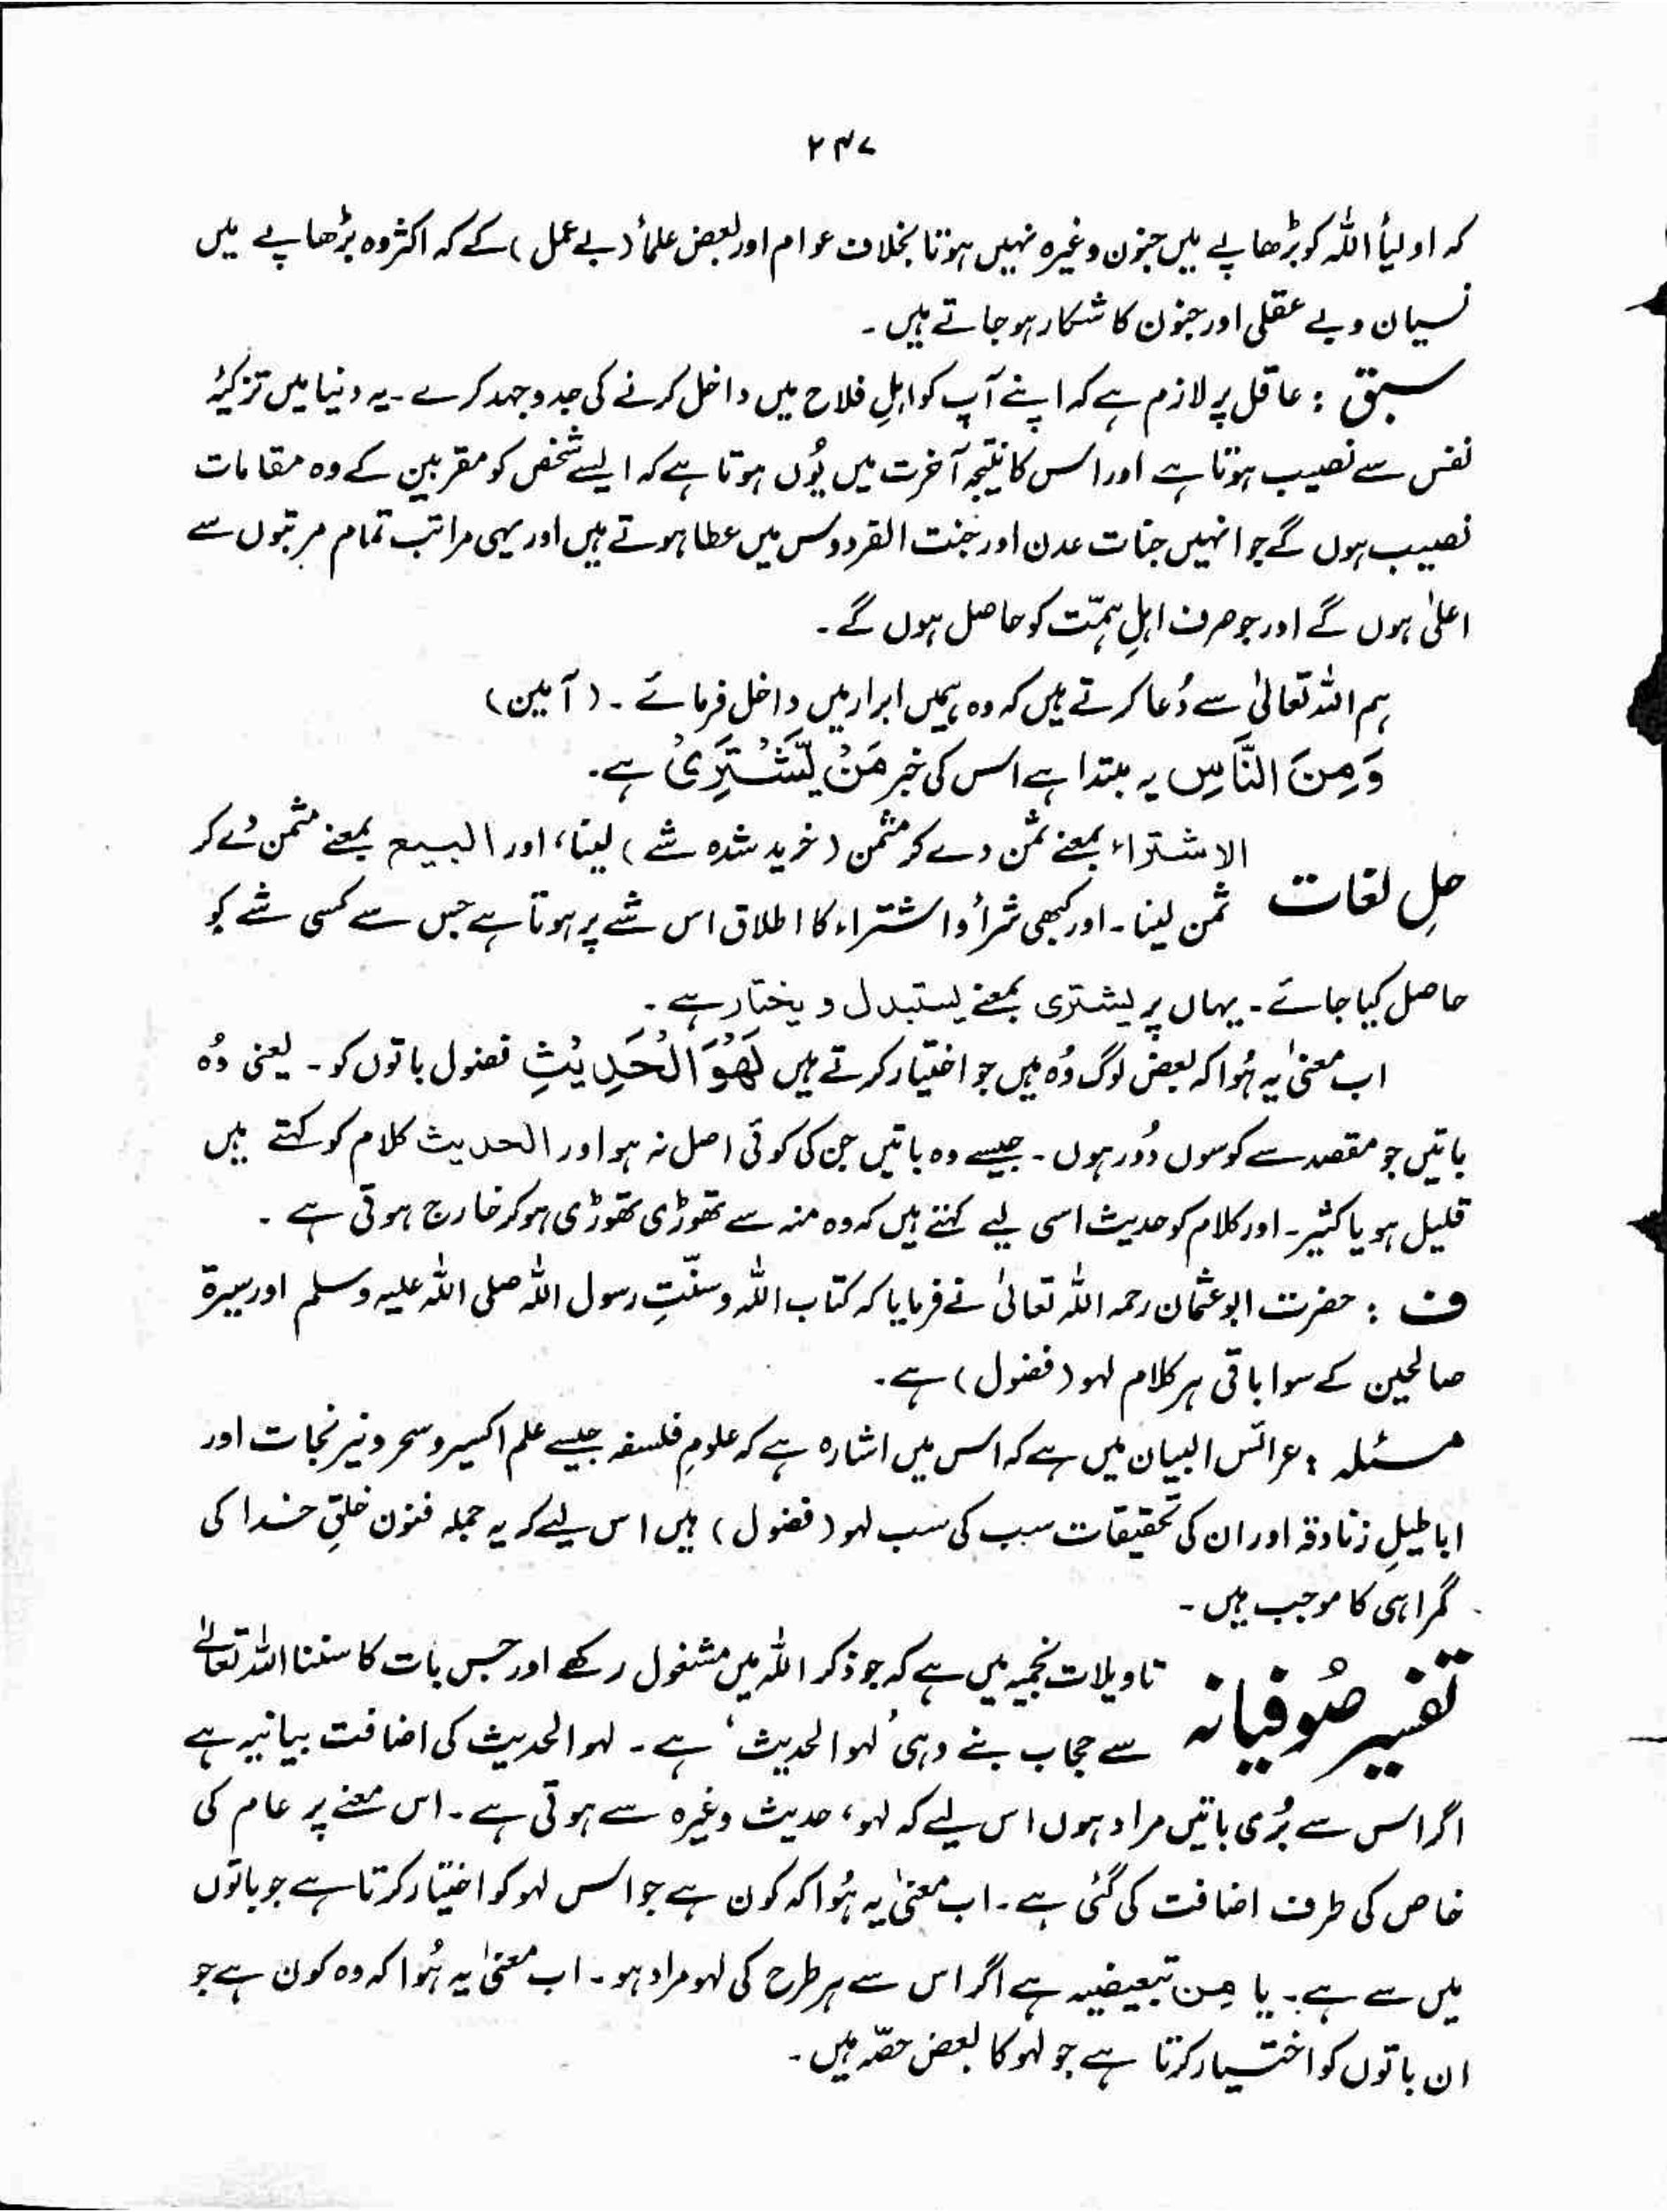 ۲۴۷
کہ اولیأ اللہ کو بڑھاپے میں جنون وغیرہ نہیں ہوتا بخلاف عوام اور بعض علمأ (بے عمل) کے کہ اکثر وہ بڑھاپے میں
نسیان و بے عقلی اور جنون کا شکار ہو جاتے ہیں۔
سبق : عاقل پر لازم ہے کہ اپنے آپ کو اہلِ فلاح میں داخل کرنے کی جدوجہد کرے۔ یہ دنیا میں تزکیۂ
نفس سے نصیب ہوتا ہے اور اس کا نتیجہ آخرت میں یُوں ہوتا ہے کہ ایسے شخص کو مقربین کے وہ مقامات
نصیب ہوں گے جو انہیں جنات عدن اور جنت الفردوس میں عطا ہوتے ہیں اور یہی مراتب تمام مرتبوں سے
اعلیٰ ہوں گے اور جو صرف اہلِ ہمّت کو حاصل ہوں گے۔
ہم اللہ تعالیٰ سے دُعا کرتے ہیں کہ وہ ہمیں ابرار میں داخل فرمائے۔ (آمین)
وَمِنَ النَّاسِ یہ مبتدا ہے اس کی خبر مَنْ یَّشْتَرِیْ ہے۔
حلِ لغات الاشتراء بمعنے ثمن دے کر مثمن (خرید شدہ شے) لینا، اور البیع بمعنے مثمن دے کر
ثمن لینا۔ اور کبھی شرأ و اشتراء کا اطلاق اس شے پر ہوتا ہے جس سے کسی شے کو
حاصل کیا جائے۔ یہاں پر یشتری بمعنے یستبدل و یختار ہے۔
اب معنیٰ یہ ہُوا کہ بعض لوگ وُہ ہیں جو اختیار کرتے ہیں لَهْوَ الْحَدِیْثِ فضول باتوں کو۔ یعنی وُہ
باتیں جو مقصد سے کوسوں دُور ہوں۔ جیسے وہ باتیں جن کی کوئی اصل نہ ہو اور الحدیث کلام کو کہتے ہیں
قلیل ہو یا کثیر۔ اور کلام کو حدیث اسی لیے کہتے ہیں کہ وہ منہ سے تھوڑی تھوڑی ہو کر خارج ہوتی ہے۔
ف : حضرت ابوعثمان رحمہ اللہ تعالیٰ نے فرمایا کہ کتاب اللہ و سنّتِ رسول اللہ صلی اللہ علیہ وسلم اور سیرۃ
صالحین کے سوا باقی ہر کلام لہو (فضول) ہے۔
مسئلہ : عرائس البیان میں ہے کہ اس میں اشارہ ہے کہ علومِ فلسفہ جیسے علم اکسیر و سحر و نیرنجات اور
اباطیلِ زنادقہ اور ان کی تحقیقات سب کی سب لہو (فضول) ہیں اس لیے کہ یہ جملہ فنون خلقِ خدا کی
گمراہی کا موجب ہیں۔
تفسیر صُوفیانہ تاویلات نجمیہ میں ہے کہ جو ذکر اللہ میں مشغول رکھے اور جس بات کا سننا اللہ تعالےٰ
سے حجاب بنے وہی ’لہو الحدیث‘ ہے۔ لہو الحدیث کی اضافت بیانیہ ہے
اگر اس سے بُری باتیں مراد ہوں اس لیے کہ لہو، حدیث وغیرہ سے ہوتی ہے۔ اس معنے پر عام کی
خاص کی طرف اضافت کی گئی ہے۔ اب معنیٰ یہ ہُوا کہ کون ہے جو اس لہو کو اختیار کرتا ہے جو باتوں
میں سے ہے۔ یا مِن تبعیضیہ ہے اگر اس سے ہر طرح کی لہو مراد ہو۔ اب معنیٰ یہ ہُوا کہ وہ کون ہے جو
ان باتوں کو اختیار کرتا ہے جو لہو کا بعض حصّہ ہیں۔